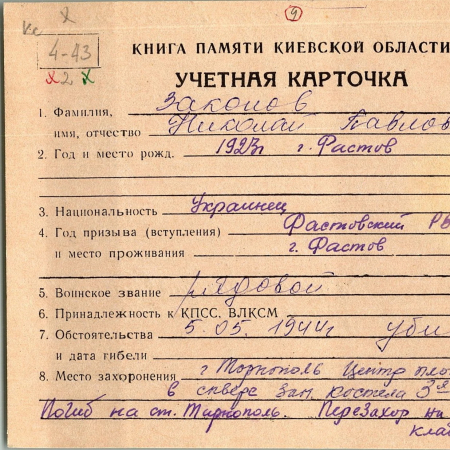 9
4-43
х2 х
КНИГА ПАМЯТИ КИЕВСКОЙ ОБЛАСТИ
УЧЕТНАЯ КАРТОЧКА
1. Фамилия, Законов
имя, отчество Николай Павлов
2. Год и место рожд. 1923г г. Фастов
3. Национальность Украинец
4. Год призыва (вступления) Фастовский РВ
и место проживания г. Фастов
5. Воинское звание рядовой
6. Принадлежность к КПСС. ВЛКСМ
7. Обстоятельства 5.05.1944г уби
и дата гибели
8. Место захоронения г Торнополь Центр пло
в сквере зан. костела 3я
Погиб на ст. Тирнополь. Перезахор на
кла